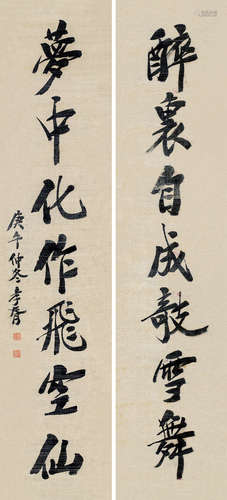 醉裏自成敲雪舞
夢中化作飛空仙
庚午仲冬孝胥